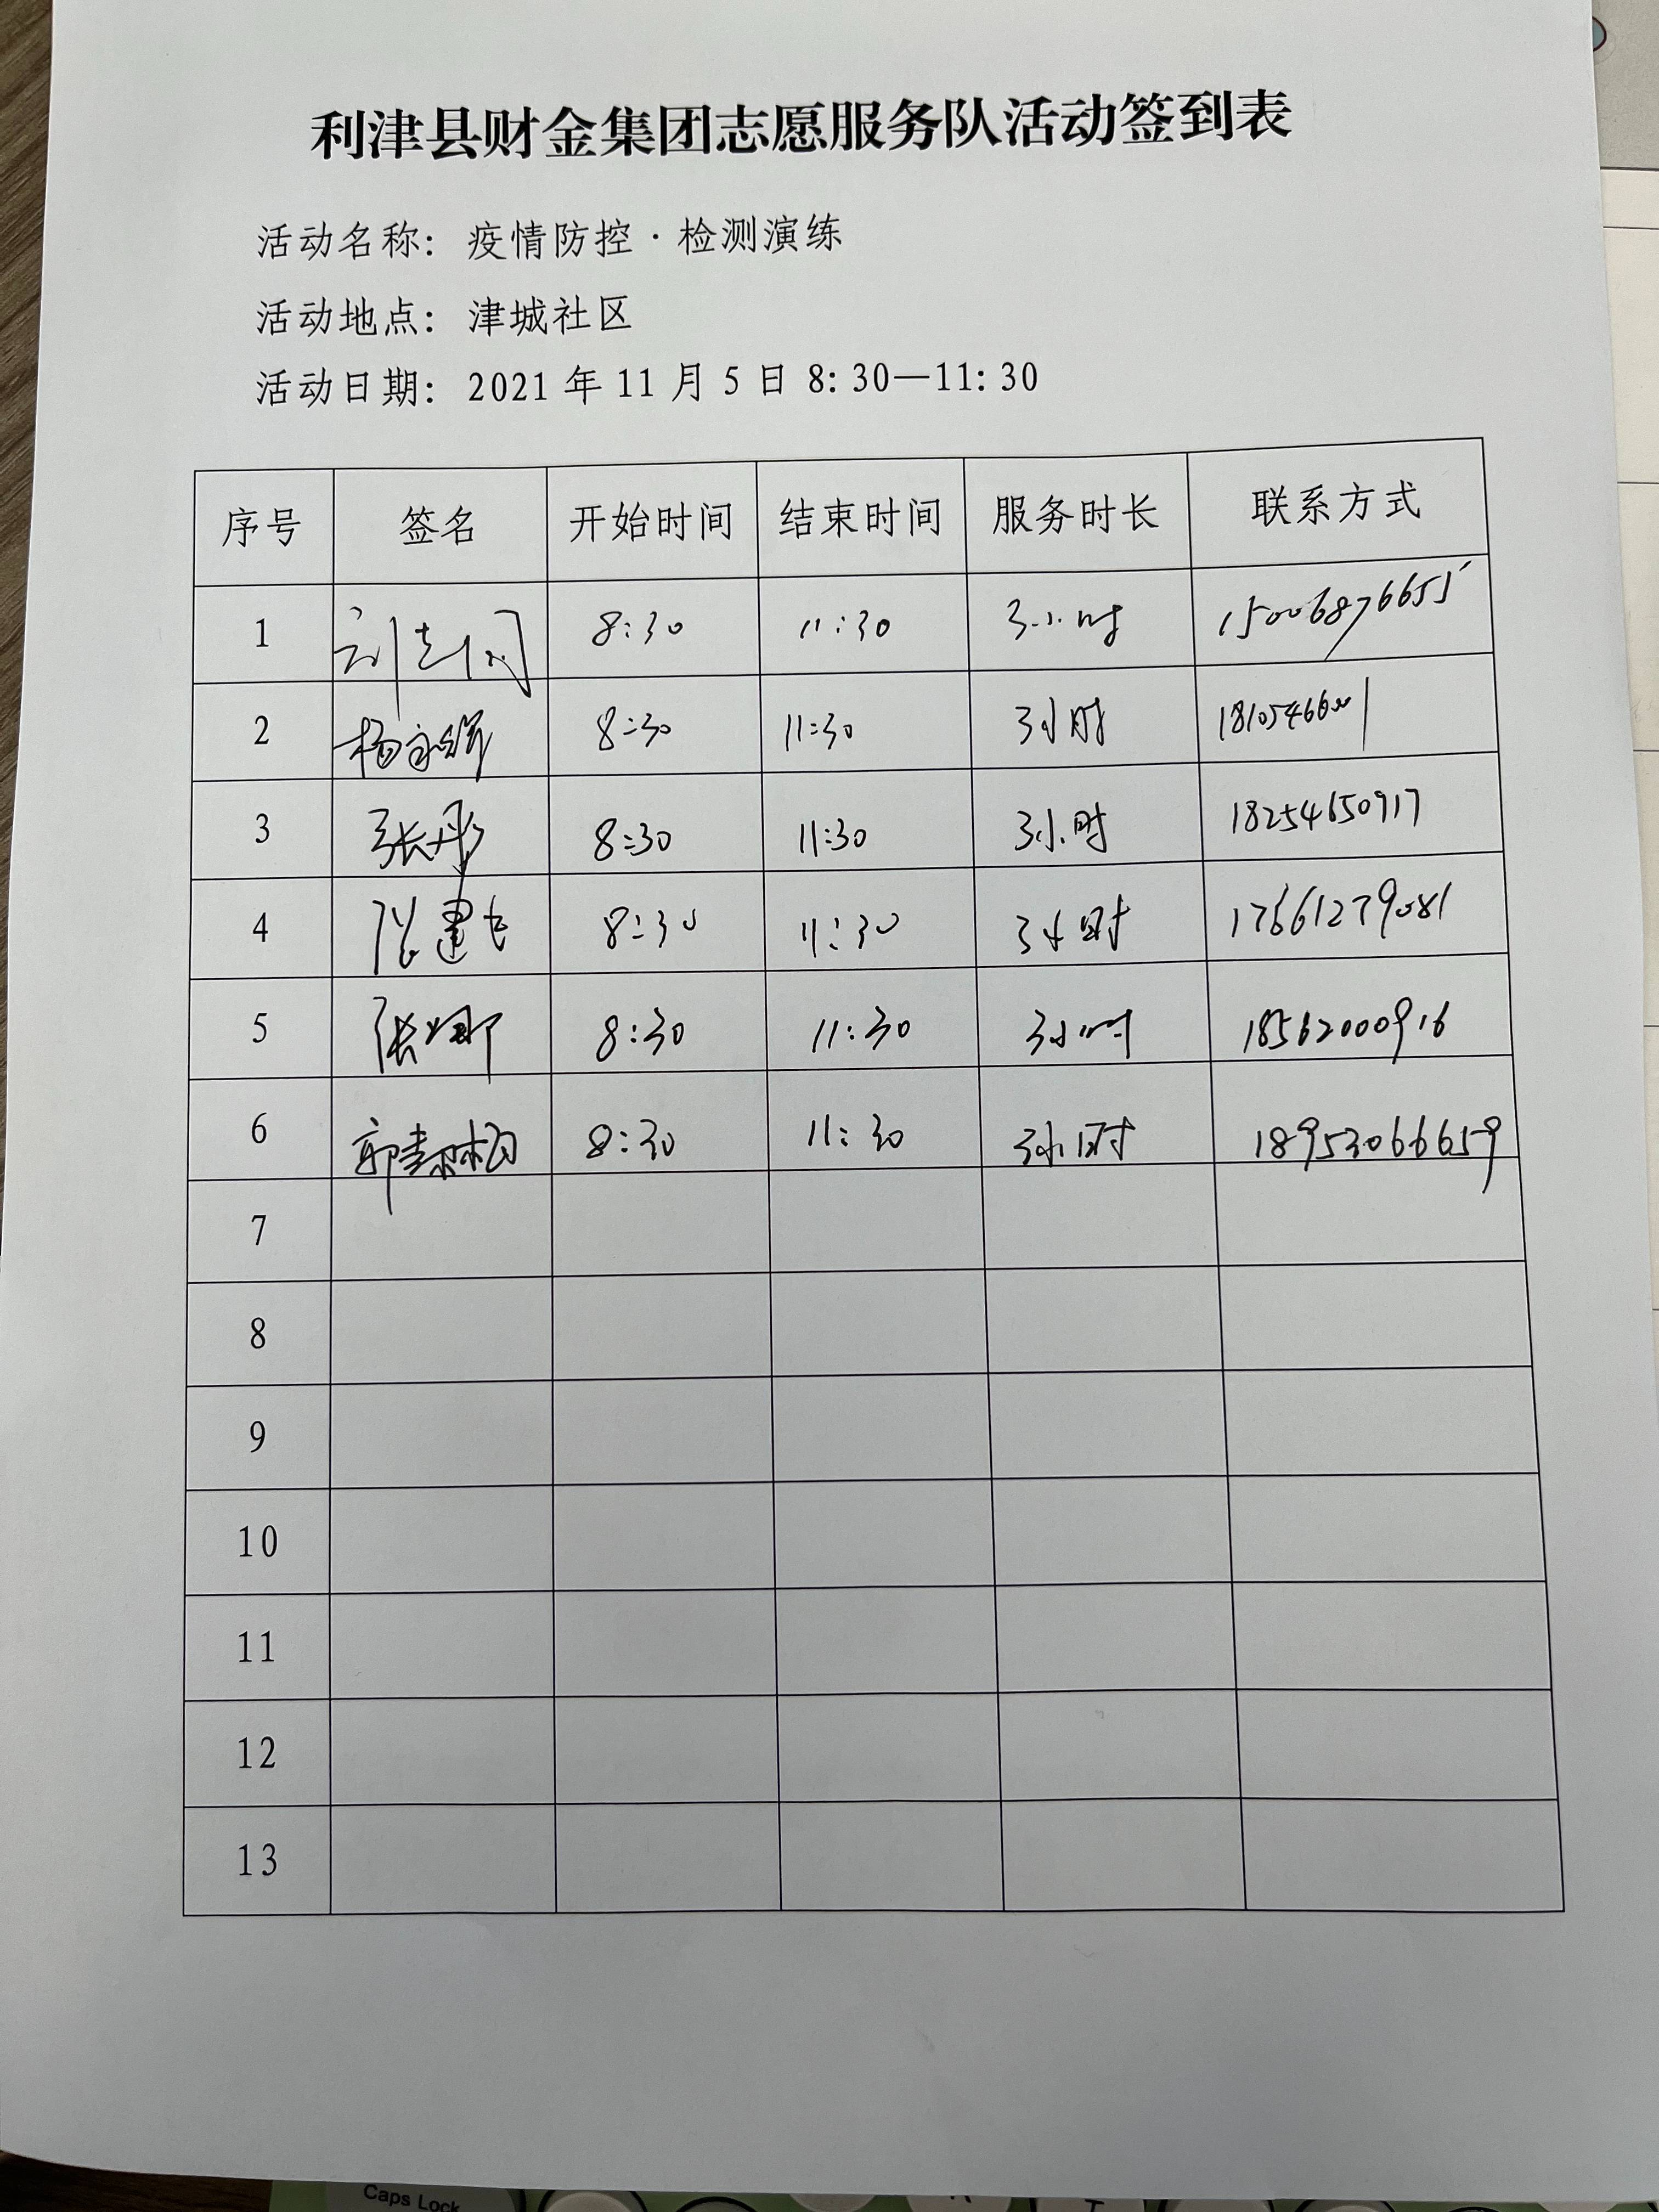 利津县财金集团志愿服务队活动签到表
活动名称：疫情防控·检测演练
活动地点：津城社区
活动日期：2021年11月5日 8:30—11:30
序号 签名 开始时间 结束时间 服务时长 联系方式
1 8:30 11:30 3小时 15006876655
2 8:30 11:30 3小时
3 张彤 8:30 11:30 3小时 18254650917
4 8:30 11:30 3小时 17661279081
5 张娜 8:30 11:30 3小时 18562000916
6 8:30 11:30 3小时 18953066659
7
8
9
10
11
12
13
Caps Lock